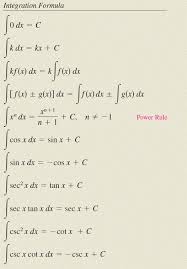 Integration Formula
∫ 0 dx = C
∫ k dx = kx + C
∫ kf(x) dx = k ∫ f(x) dx
∫ [f(x) ± g(x)] dx = ∫ f(x) dx ± ∫ g(x) dx
∫ xⁿ dx = xⁿ⁺¹/(n + 1) + C, n ≠ −1 Power Rule
∫ cos x dx = sin x + C
∫ sin x dx = −cos x + C
∫ sec² x dx = tan x + C
∫ sec x tan x dx = sec x + C
∫ csc² x dx = −cot x + C
∫ csc x cot x dx = −csc x + C